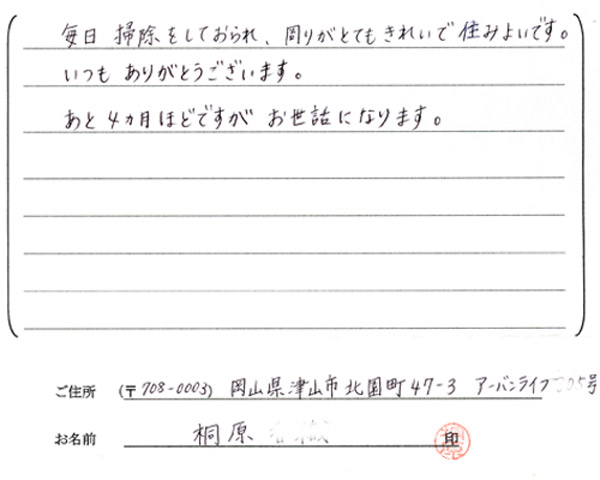 毎日 掃除をしておられ、周りがとてもきれいで住みよいです。
いつも ありがとうございます。
あと 4ヵ月ほどですが お世話になります。
ご住所 (〒708-0003) 岡山県津山市北園町47-3 アーバンライフ 号
お名前 桐原 印